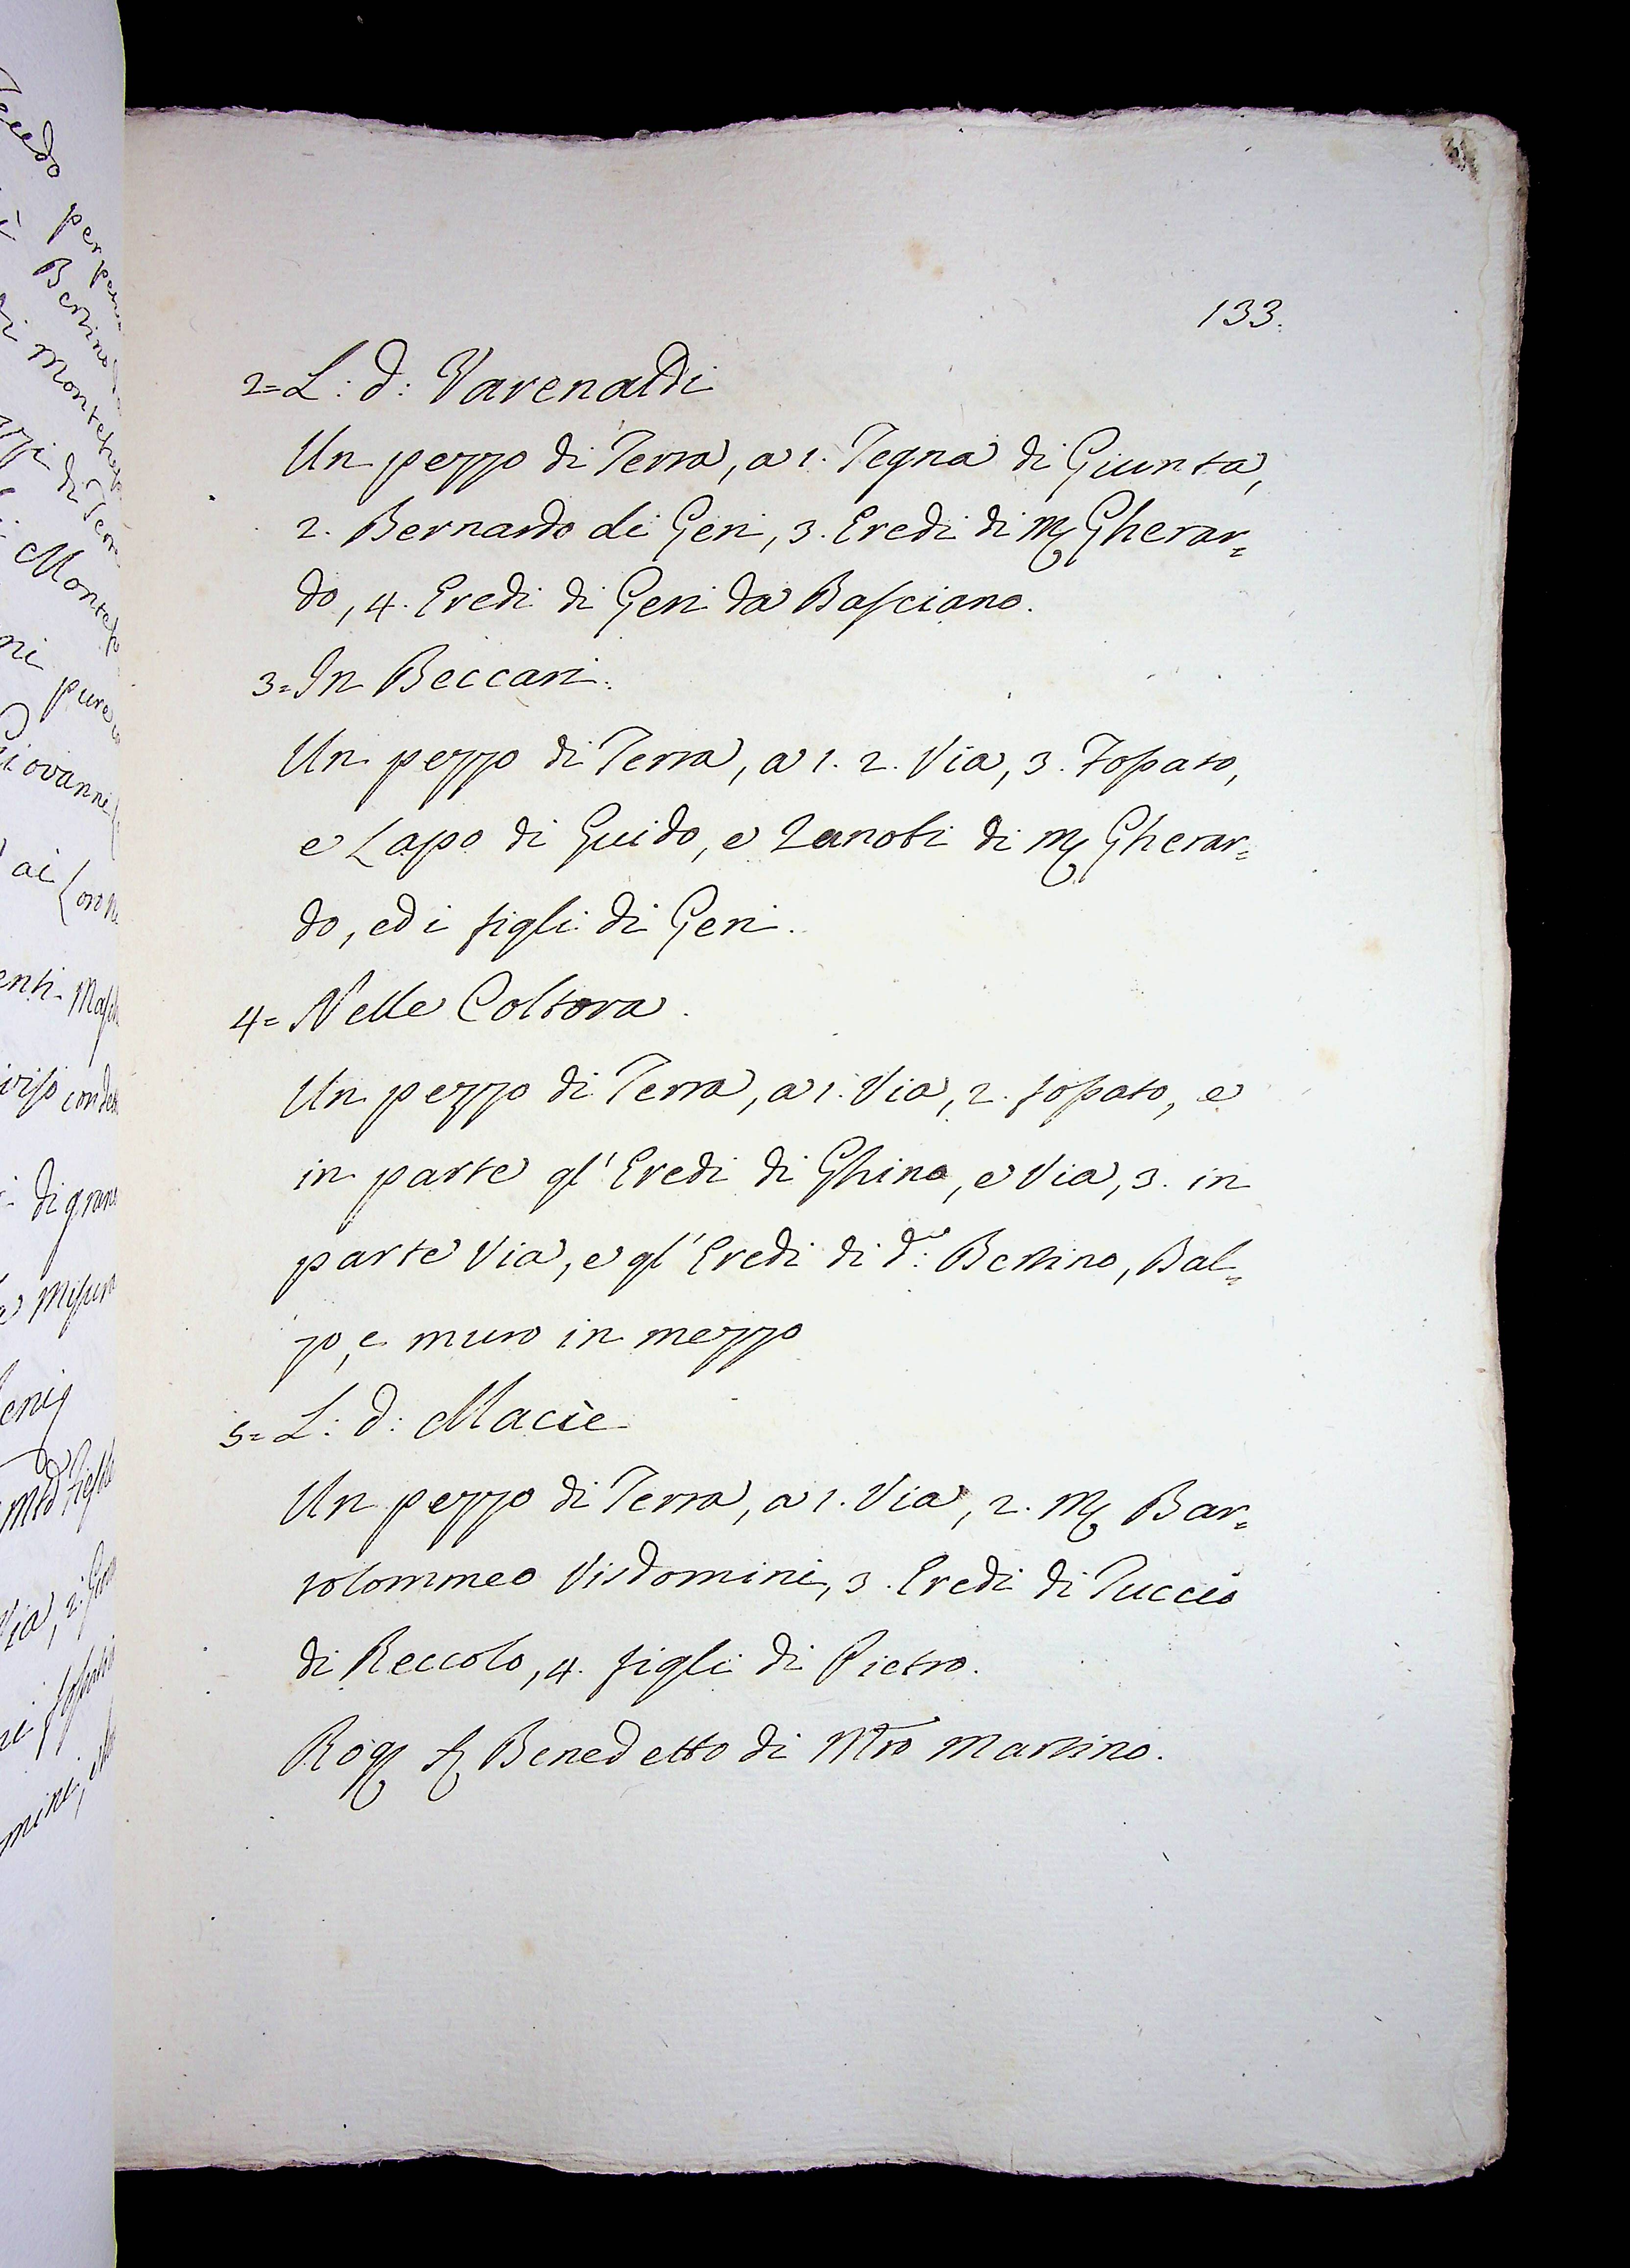 133.
2= L: d: Varenaldi
Un pezzo di Terra, a 1. Tegna di Giunta,
2. Bernardo di Geri, 3. Eredi di M. Gherar=
do, 4. Eredi di Geri da Basciano.
3= In Beccari.
Un pezzo di Terra, a 1. 2. Via, 3. Fossato,
e Lapo di Guido, e Zanobi di M. Gherar=
do, ed i figli di Geri.
4= Nelle Coltora.
Un pezzo di Terra, a 1. Via, 2. fossato, e
in parte gl' Eredi di Ghino, e Via, 3. in
parte Via, e gl' Eredi di d.º: Bertino, Bal=
zo, e muro in mezzo
5= L: d: Macìe
Un pezzo di Terra, a 1. Via, 2. M. Bar=
tolommeo Visdomini, 3. Eredi di Puccio
di Reccolo, 4. figli di Pietro.
Rog. S. Benedetto di Mro Martino.